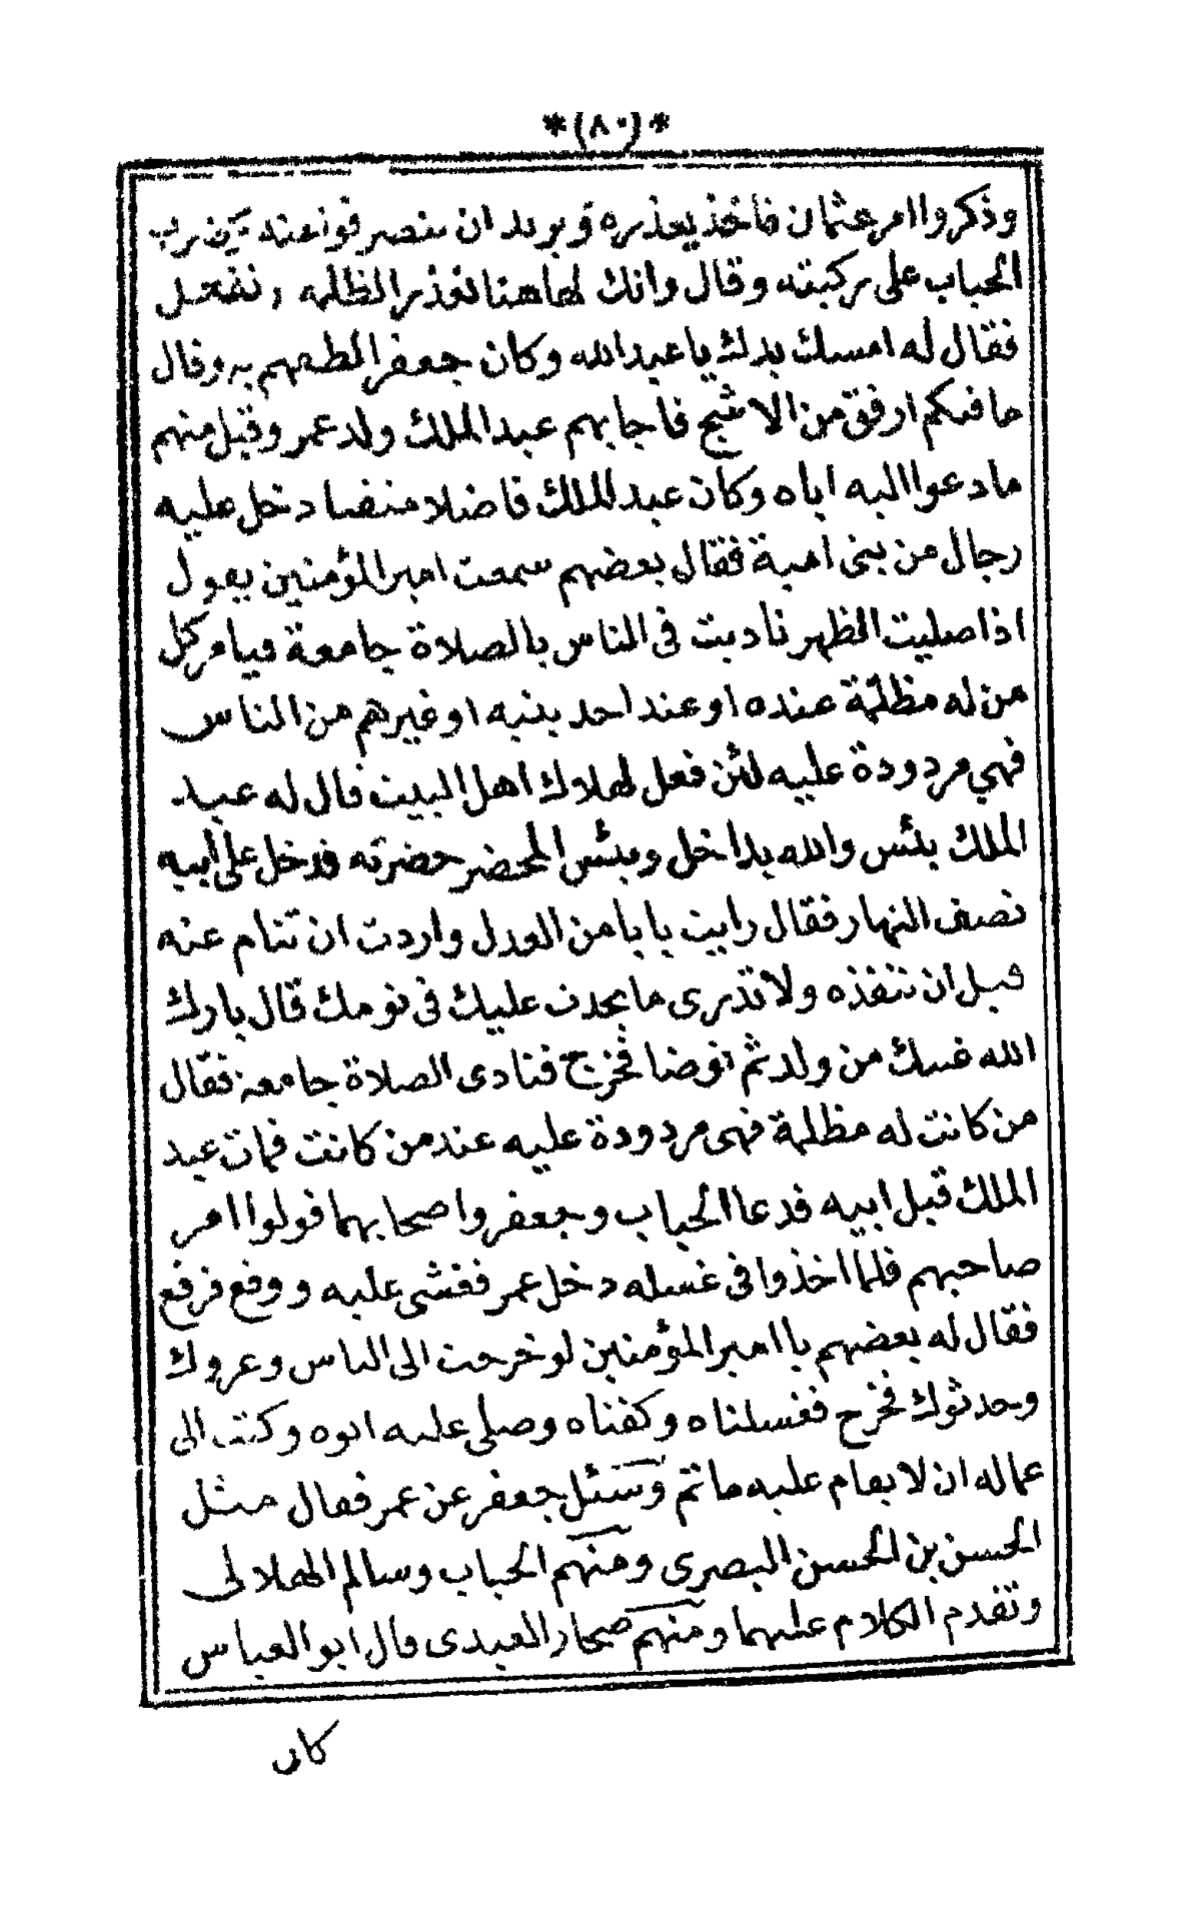 *(٨٠)*
وذكروا امر عثمان فاخذ يعذره ويريد ان ينصر فوا عنده فضرب
الحباب على ركبته وقال وانك لهاهنا تعذر الظلمة
فقال له امسك يدك يا عبد الله وكان جعفر الطفهم به وقال
ما فيكم ارفق من الاشج فاجابهم عبد الملك ولد عمر وقبل منهم
ما دعوا اليه اباه وكان عبد الملك فاضلا منصفا دخل عليه
رجال من بنى امية فقال بعضهم سمعت امير المؤمنين يقول
اذا صليت الظهر ناديت فى الناس بالصلاة جامعة فيامر كل
من له مظلمة عنده او عند احد بنيه او غيرهم من الناس
فهي مردودة عليه لئن فعل لهلاك اهل البيت قال له عبد
الملك بئس والله يداخل وبئس المحضر حضرته فدخل على ابيه
نصف النهار فقال رايت بابا من العدل واردت ان تنام عنه
قبل ان تنفذه ولا تدرى ما يحدث عليك فى نومك قال بارك
الله فيك من ولد ثم توضا فخرج فنادى الصلاة جامعة فقال
من كانت له مظلمة فهى مردودة عليه عند من كانت فمات عبد
الملك قبل ابيه فدعا الحباب وجعفر واصحابهما فولوا امر
صاحبهم فلما اخذوا فى غسله دخل عمر فغشى عليه ووقع فرفع
فقال له بعضهم يا امير المؤمنين لو خرجت الى الناس وعزوك
وحدثوك فخرج فغسلناه وكفناه وصلى عليه ابوه وكتب الى
عماله ان لا يقام عليه ماتم وسئل جعفر عن عمر فقال مثل
الحسن بن الحسن البصرى ومنهم الحباب وسالم الهلالى
وتقدم الكلام عليهما ومنهم صحار العبدى قال ابو العباس
كان